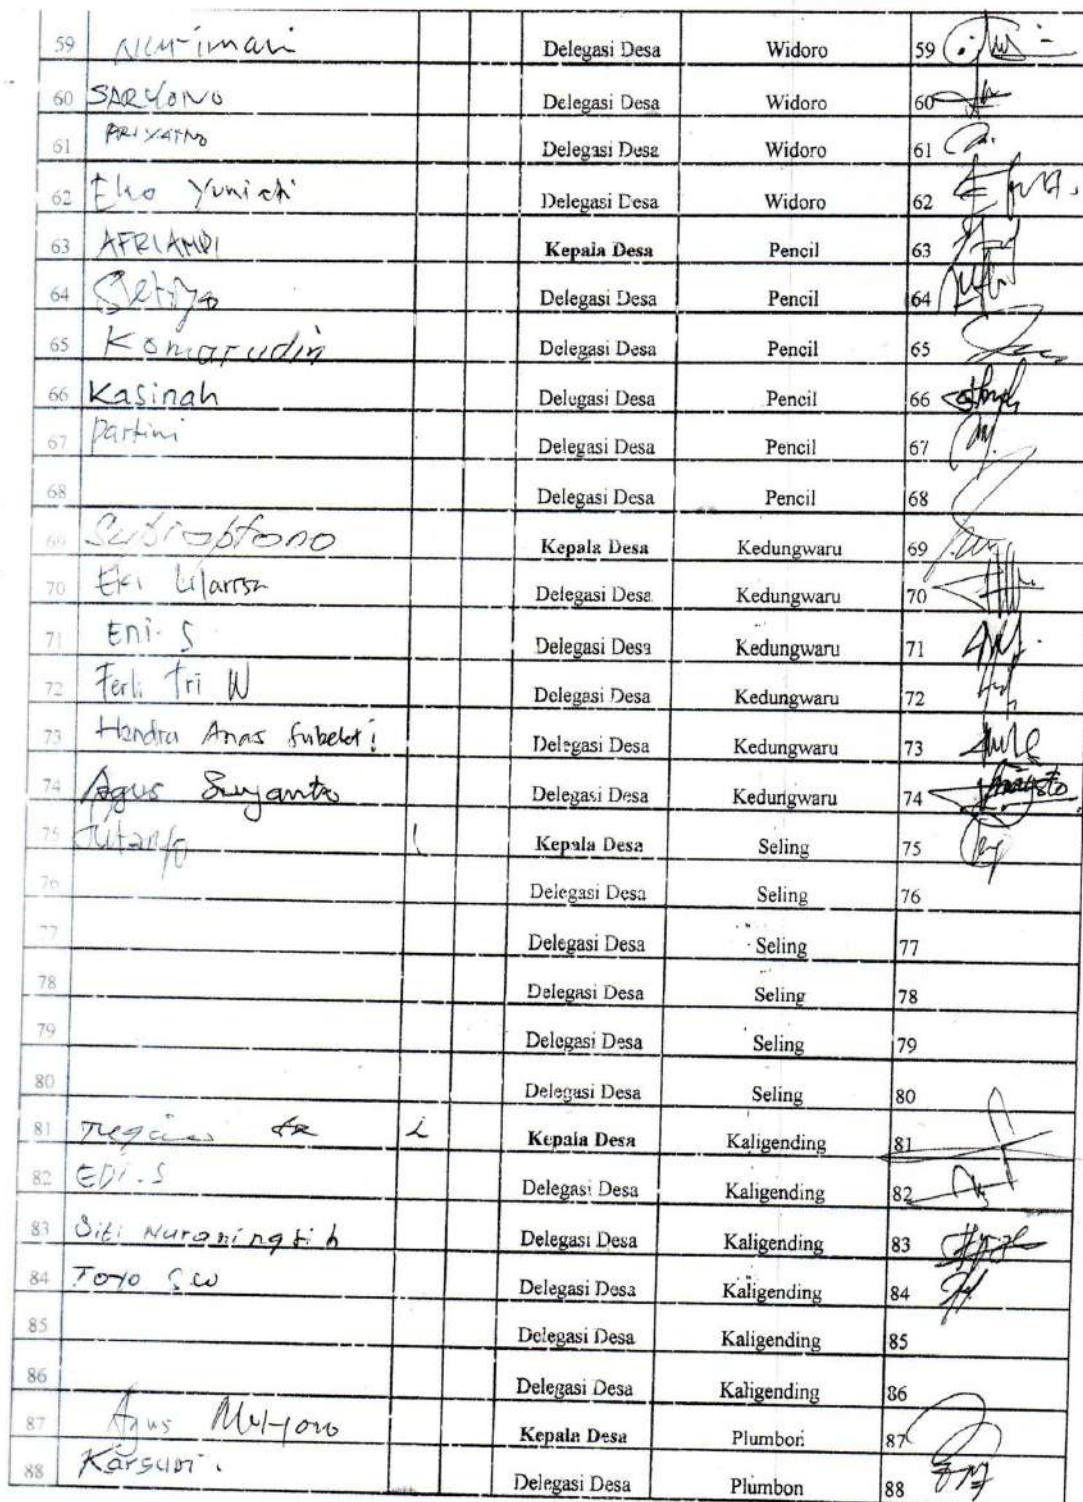 59 Nur iman Delegasi Desa Widoro 59
60 SARYONO Delegasi Desa Widoro 60
61 PRIYATNO Delegasi Desa Widoro 61
62 Eko Yuniati Delegasi Desa Widoro 62
63 AFRIANDI Kepala Desa Pencil 63
64 Setiyo Delegasi Desa Pencil 64
65 Komarudin Delegasi Desa Pencil 65
66 Kasinah Delegasi Desa Pencil 66
67 Partini Delegasi Desa Pencil 67
68 Delegasi Desa Pencil 68
69 Kepala Desa Kedungwaru 69
70 Delegasi Desa Kedungwaru 70
71 Eni. S Delegasi Desa Kedungwaru 71
72 Ferli Tri W Delegasi Desa Kedungwaru 72
73 Hendra Anas Delegasi Desa Kedungwaru 73
74 Agus Suyanto Delegasi Desa Kedungwaru 74
75 Kepala Desa Seling 75
76 Delegasi Desa Seling 76
77 Delegasi Desa Seling 77
78 Delegasi Desa Seling 78
79 Delegasi Desa Seling 79
80 Delegasi Desa Seling 80
81 L Kepala Desa Kaligending 81
82 EDI. S Delegasi Desa Kaligending 82
83 Siti Nuraningsih Delegasi Desa Kaligending 83
84 TOYO SW Delegasi Desa Kaligending 84
85 Delegasi Desa Kaligending 85
86 Delegasi Desa Kaligending 86
87 Agus Mulyono Kepala Desa Plumbon 87
88 Karsum. Delegasi Desa Plumbon 88